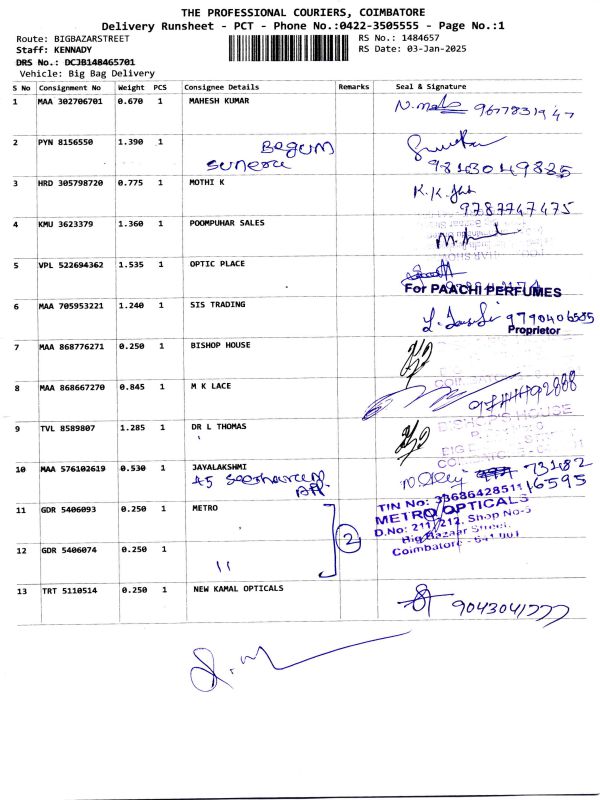 THE PROFESSIONAL COURIERS, COIMBATORE
Delivery Runsheet - PCT - Phone No.:0422-3505555 - Page No.:1
Route: BIGBAZARSTREET RS No.: 1484657
Staff: KENNADY RS Date: 03-Jan-2025
DRS No.: DCJB148465701
Vehicle: Big Bag Delivery
S No Consignment No Weight PCS Consignee Details Remarks Seal & Signature
1 MAA 302706701 0.670 1 MAHESH KUMAR
2 PYN 8156550 1.390 1 Begum
3 HRD 305798720 0.775 1 MOTHI K
9787747475
4 KMU 3623379 1.360 1 POOMPUHAR SALES
5 VPL 522694362 1.535 1 OPTIC PLACE
For PAACHI PERFUMES
6 MAA 705953221 1.240 1 SIS TRADING 9790406585
Proprietor
7 MAA 868776271 0.250 1 BISHOP HOUSE
8 MAA 868667270 0.845 1 M K LACE
BISHOP'S HOUSE
9 TVL 8589807 1.285 1 DR L THOMAS
10 MAA 576102619 0.530 1 JAYALAKSHMI 73182
16595
TIN No: 33686428511
11 GDR 5406093 0.250 1 METRO
METRO OPTICALS
D.No: 211/212, Shop No-5
2
Big Bazaar Street,
12 GDR 5406074 0.250 1
Coimbatore - 641 001
"
13 TRT 5110514 0.250 1 NEW KAMAL OPTICALS
9043041777